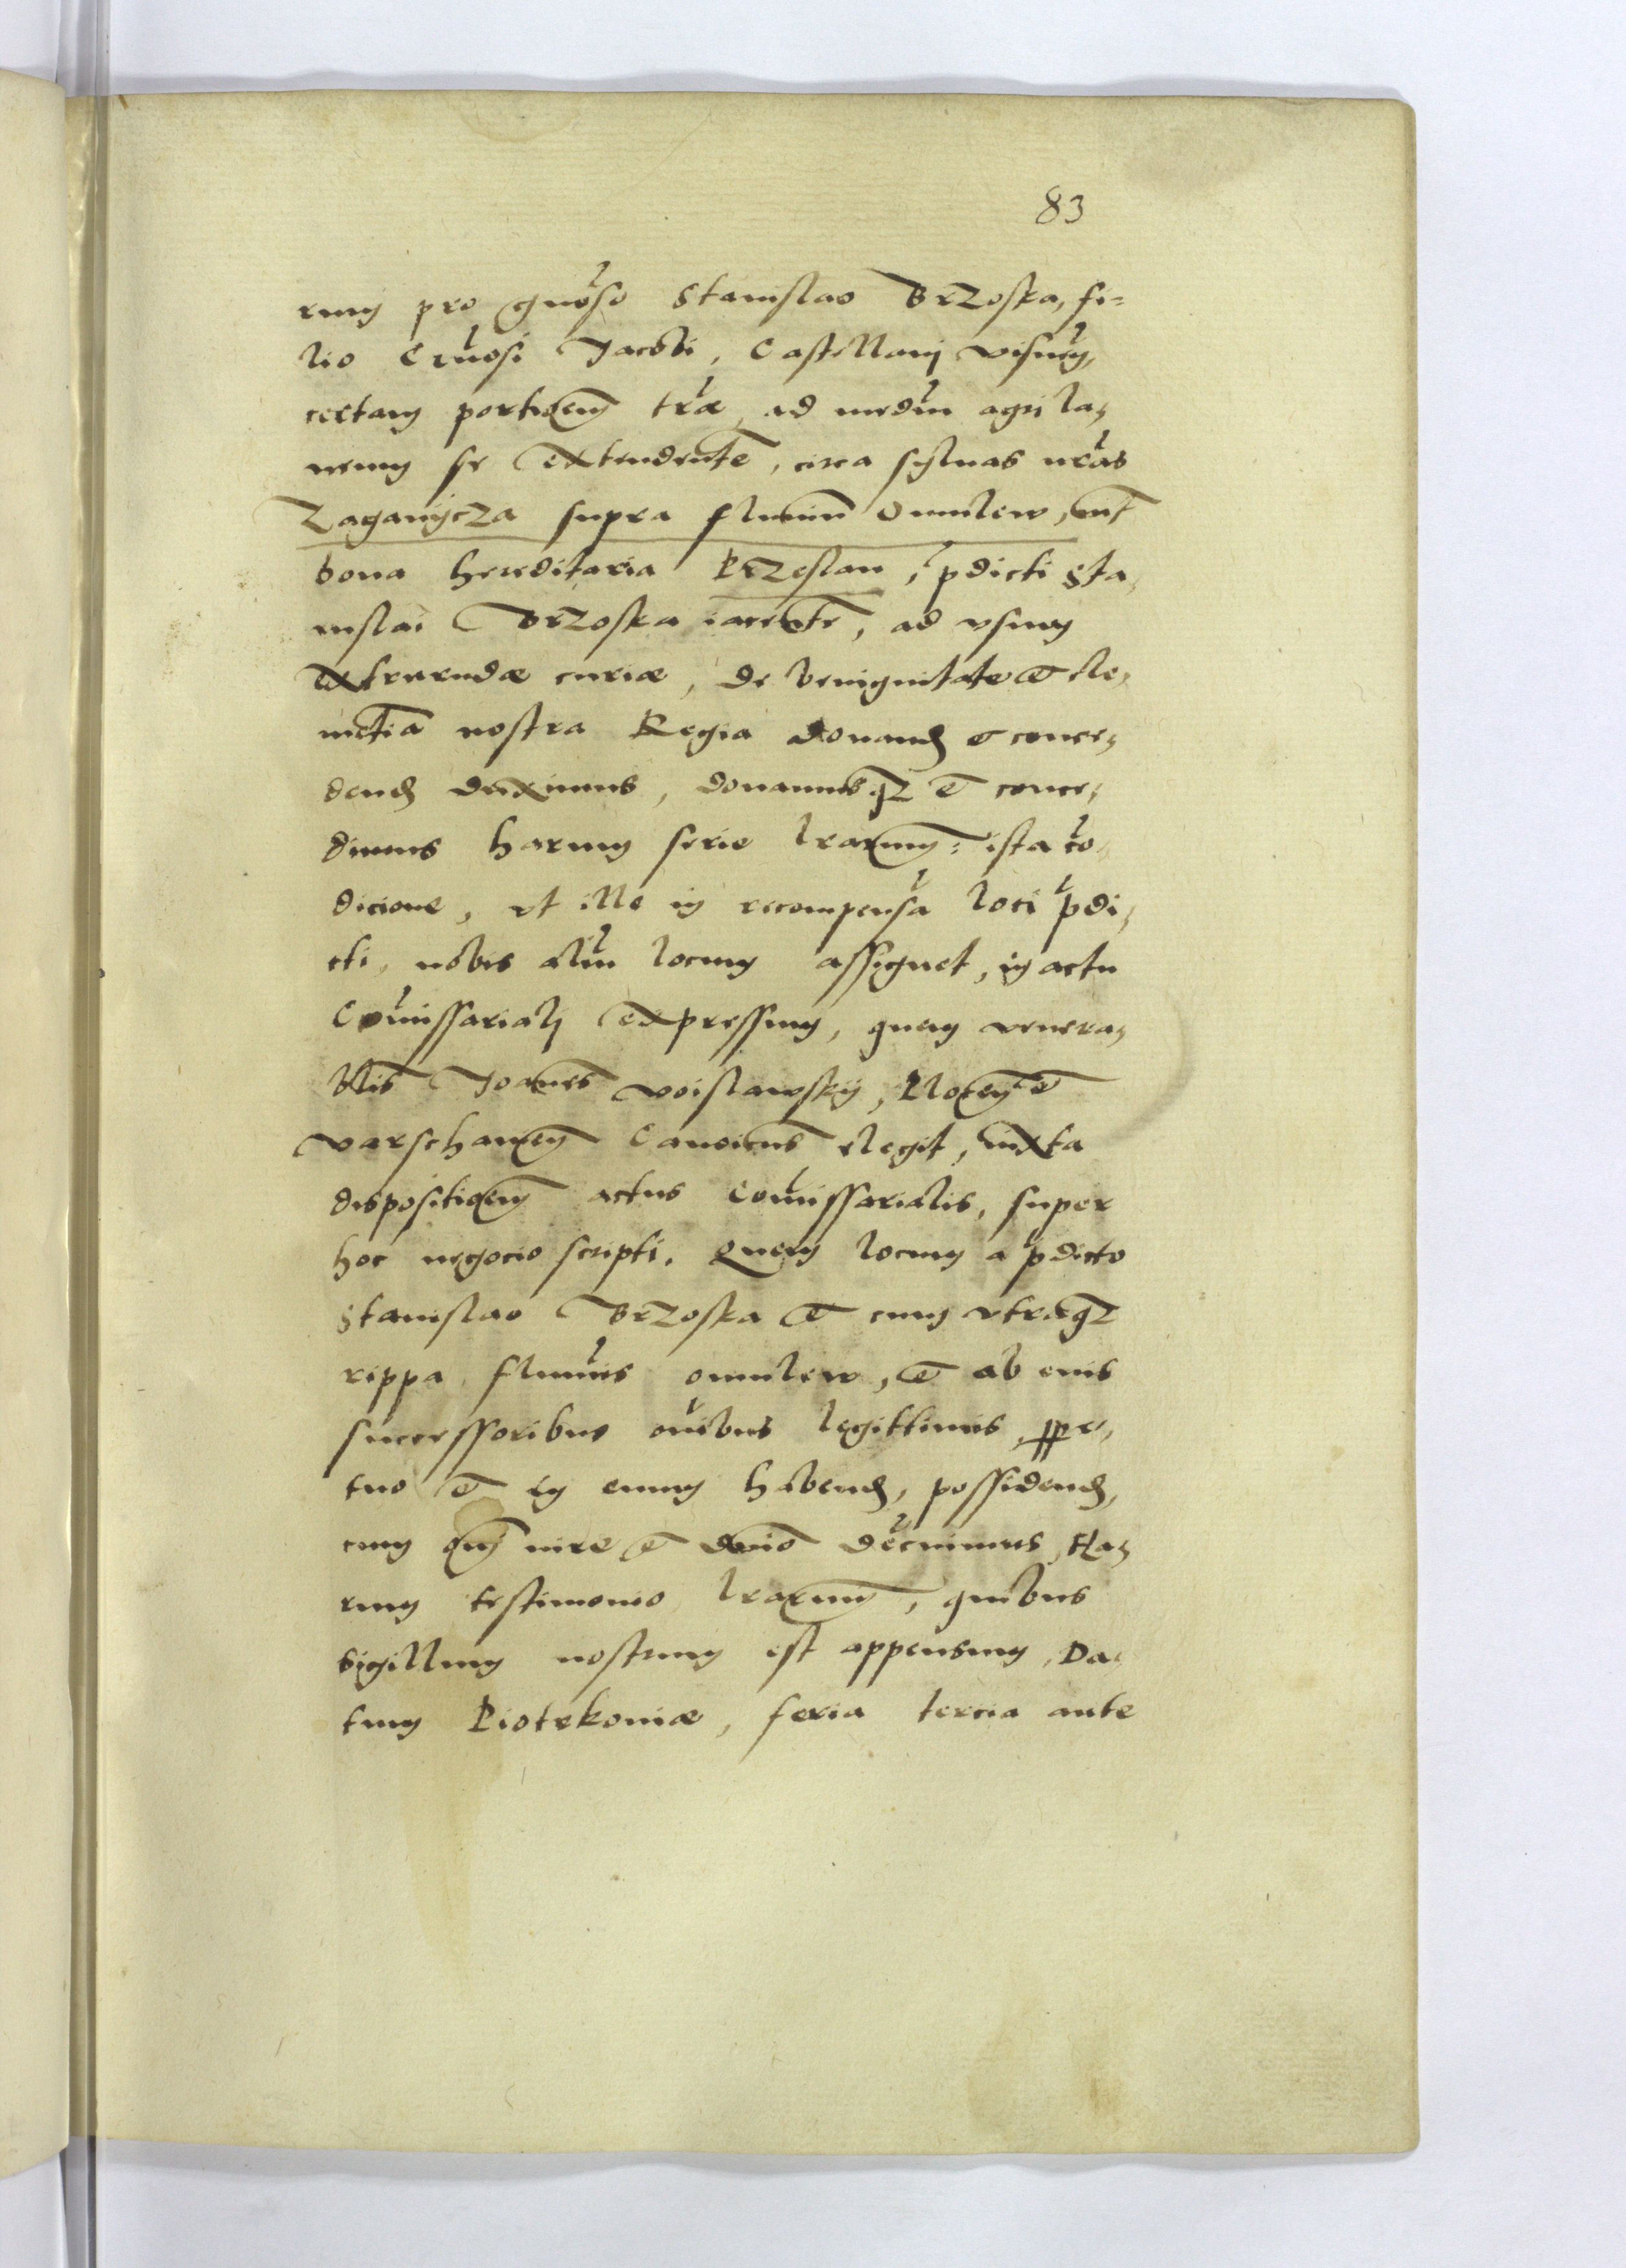 83
rum pro gnoso Stanislao Brzoska, fi=
lio Gnosi Jacobi, Castellani Visnen,
certam portionem trae ad mediu agri la,
neum se extendente, circa sylvas nras
Zaganycza supra fluviu Omulew, int
bona hereditaria Przeslan, pdicti Sta,
nislai Brzoska iacente, ad vsum
extruendæ curiæ, de benignitate et cle,
mentia nostra Regia donand et conce,
dend duximus, donamusqz et conce,
dimus harum serie lrarum: ista co,
dicione, vt ille in recompensa loci pdi,
cti, nobis aliu locum assignet, in actu
Comissariali expressum, quem venera,
blis Joanes Voislawsky, Plocen et
Varschavien Canoicus elegit, iuxta
dispositionem actus Comissarialis, super
hoc negocio scripti. Quem locum a pdicto
Stanislao Brzoska et cum vtraqz
rippa fluvii Omulew, et ab eius
successoribus oibus legittimis, ppe,
tuo et in evum habend, possidend,
cum omi iure et dnio decrnimus, Ha,
rum testimonio lrarum, quibus
sigillum nostrum est appensum, Da,
tum Piotrkoviæ, feria tercia ante